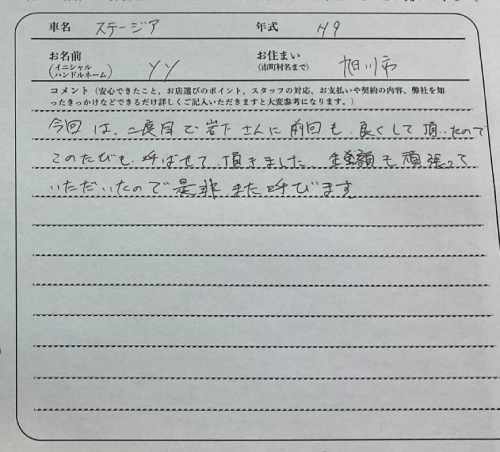 車名 ステージア 年式 H9
お名前 (イニシャル ハンドルネーム) YY お住まい (市町村名まで) 旭川市
コメント (安心できたこと、お店選びのポイント、スタッフの対応、お支払いや契約の内容、弊社を知
ったきっかけなどできるだけ詳しくご記入いただきますと大変参考になります。)
今回は、二度目で岩下さんに前回も、良くして頂いたので
このたびも、呼ばせて頂きました 金額も頑張って
いただいたので是非また呼びます